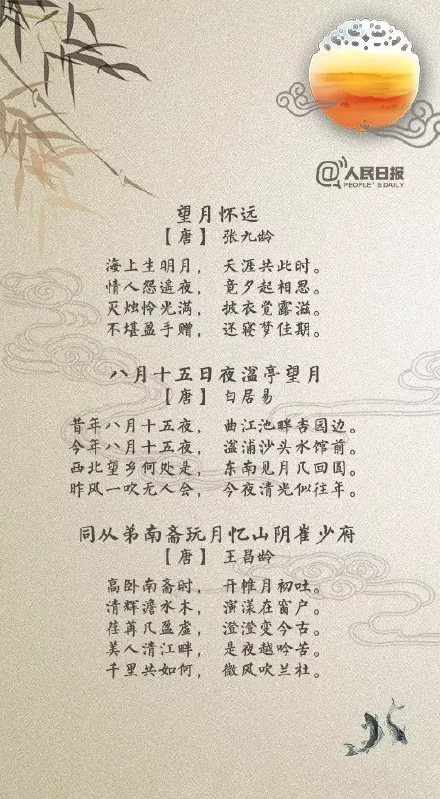 @人民日报
PEOPLE'S DAILY
望月怀远
【唐】 张九龄
海上生明月， 天涯共此时。
情人怨遥夜， 竟夕起相思。
灭烛怜光满， 披衣觉露滋。
不堪盈手赠， 还寝梦佳期。
八月十五日夜湓亭望月
【唐】 白居易
昔年八月十五夜， 曲江池畔杏园边。
今年八月十五夜， 湓浦沙头水馆前。
西北望乡何处是， 东南见月几回圆。
昨风一吹无人会， 今夜清光似往年。
同从弟南斋玩月忆山阴崔少府
【唐】 王昌龄
高卧南斋时， 开帷月初吐。
清辉澹水木， 演漾在窗户。
荏苒几盈虚， 澄澄变今古。
美人清江畔， 是夜越吟苦。
千里共如何， 微风吹兰杜。